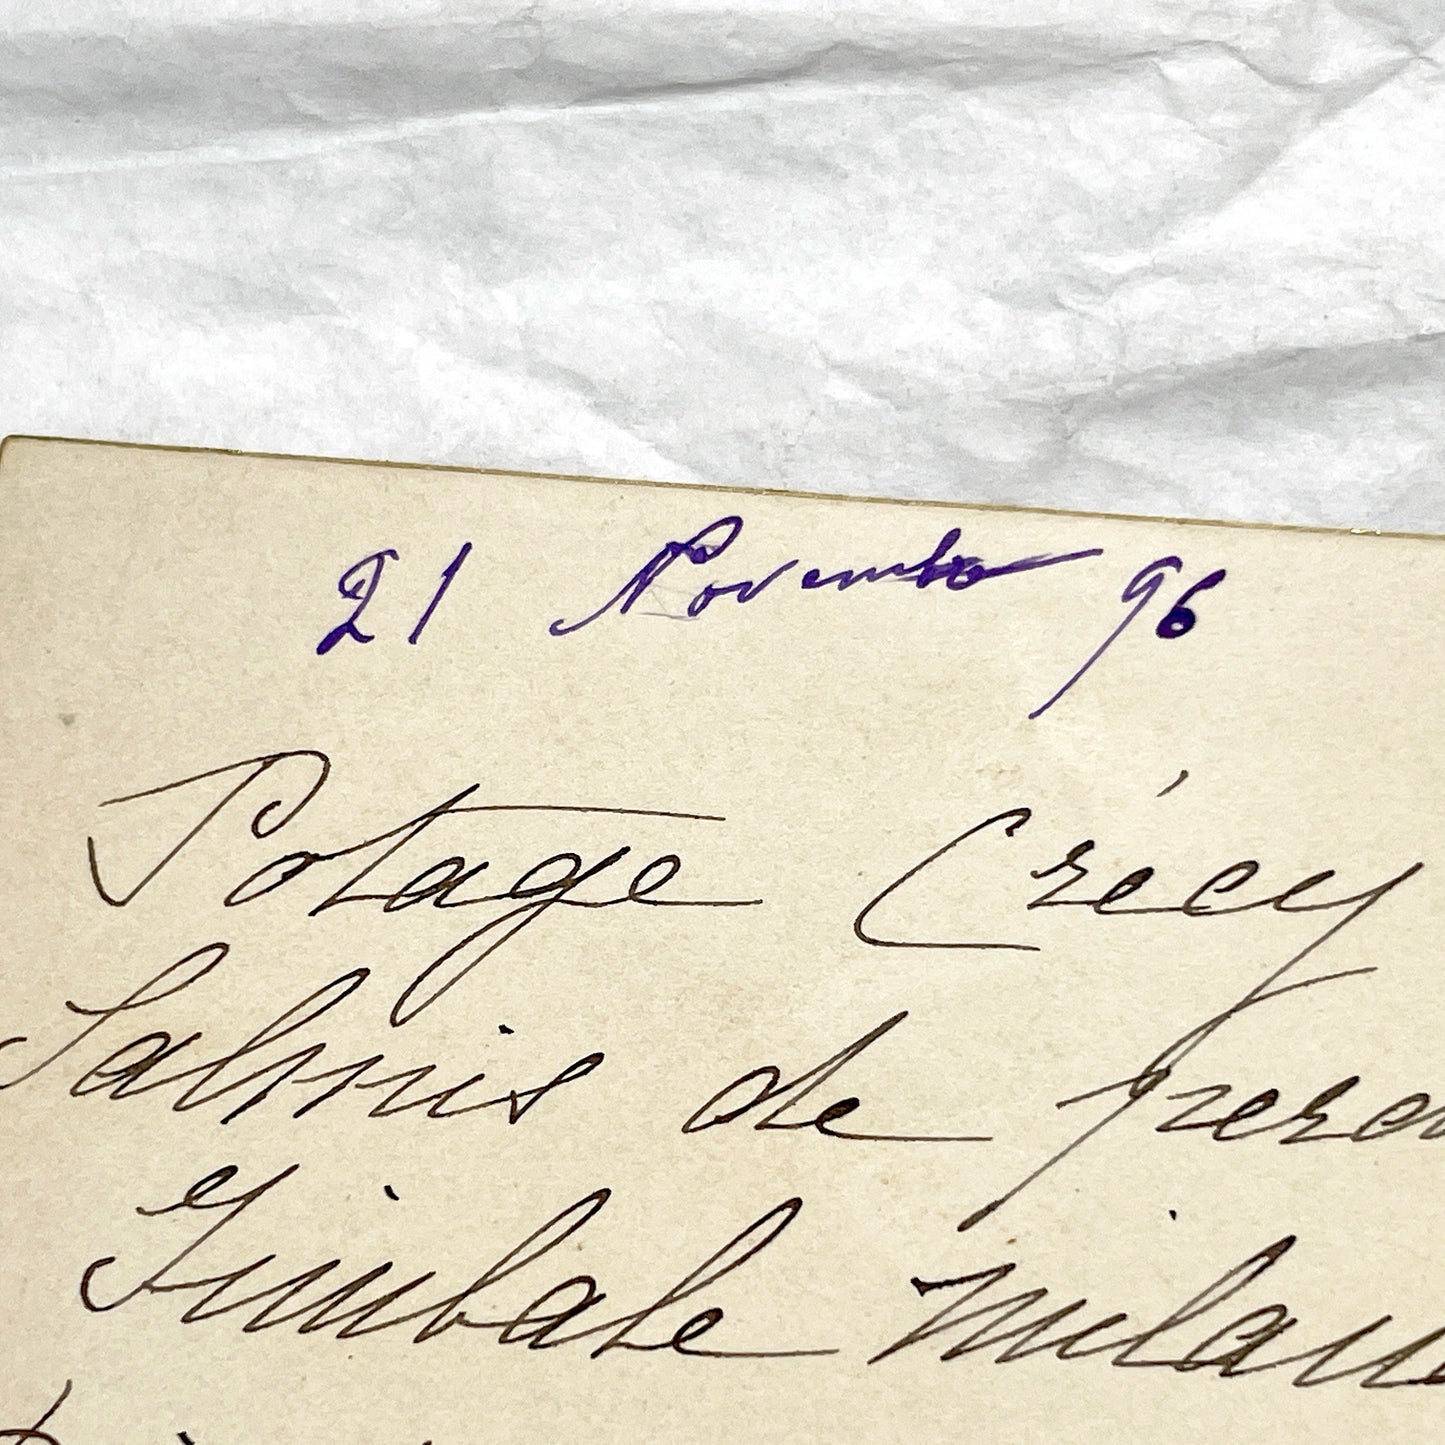 21 Novembre 96
Potage Crécy
Salmis de perd
Timbale milan